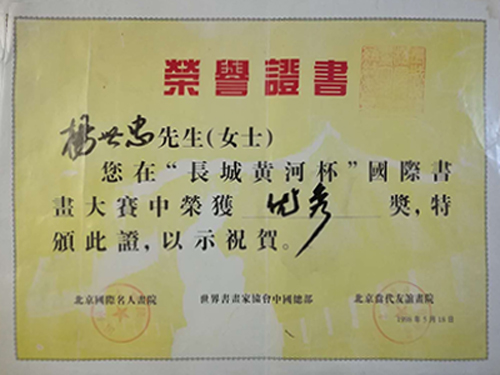 榮譽證書
楊世忠先生(女士)
您在“長城黃河杯”國際書
畫大賽中榮獲 優秀 獎,特
頒此證,以示祝賀。
北京國際名人畫院 世界書畫家協會中國總部 北京當代友誼畫院
年5月18日